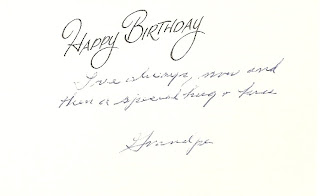 HAPPY BIRTHDAY
Love always, now and
then a special hug &
Grandpa